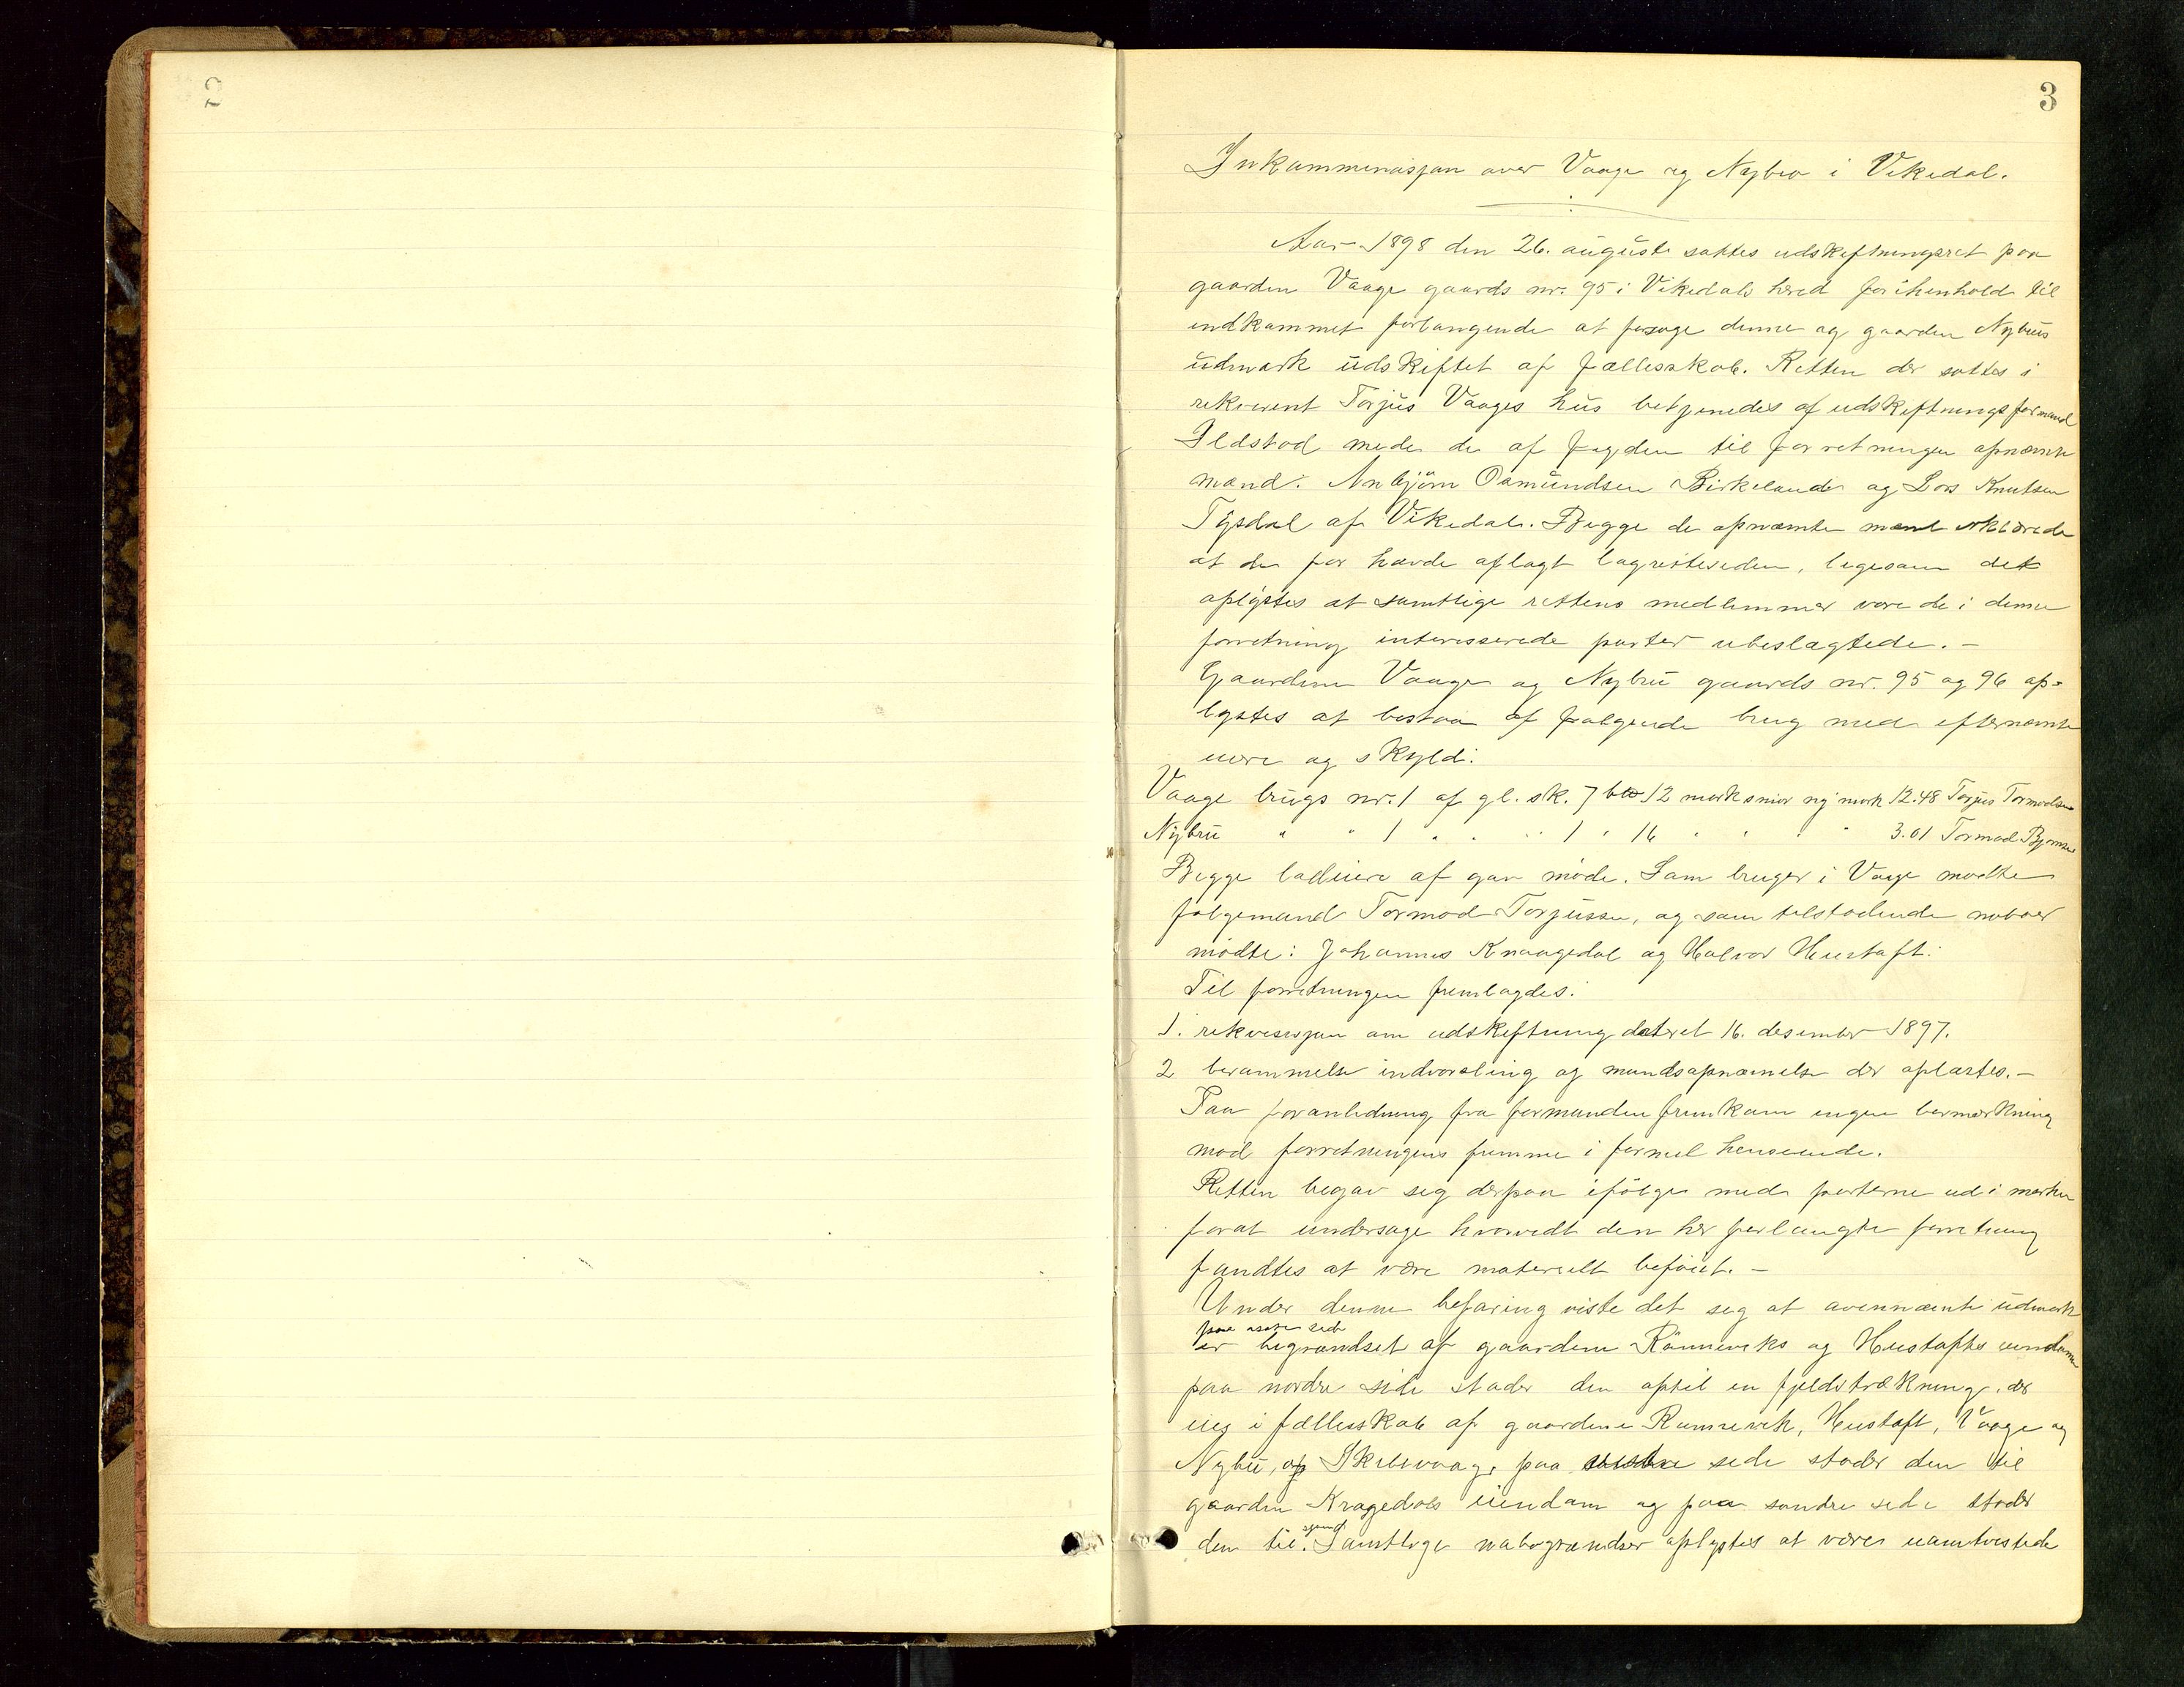 2
3
Inkamminasjon over Vaage og Nybru i Vikedal.
Aar 1898 den 26. august sattes udskiftningsret paa
gaarden Vaage gaards nr. 95 i Vikedals hered forihenhold til
indkommet forlangende at forsøge denne og gaarden Nybrus
udmark udskiftet af fællesskab. Retten der sattes i
rekvirent Torjus Vaages hus betjenedes af udskiftningsformand
Ildstad med de af fogden til forretningen opnævnte
mænd: Anbjörn Osmundsen Birkeland og Lars Knutsen
Tysdal af Vikedal. Begge de opnævnte mænd erklærede
at de før havde aflagt lagretteseden, ligesom det
oplystes at samtlige rettens medlemmer vare de i denne
forretning interesserede parter ubeslægtede. –
Gaardene Vaage og Nybru gaards nr. 95 og 96 op-
lystes at bestaa af følgende brug med efternævnte
eiere og skyld:
Vaage brugs nr. 1 af gl. sk. 7 12 mark smör ny mark 12.48 Torjus Tormodsen
Nybru " " 1 " " " 1 " 16 " " " " 3.01 Tormod
Begge eiere af gav møde. Som bruger i Vaage mødte
følgemand Tormod Torjusen, og som tilstødende naboer
mødte: Johannes Kraagedal og Halvor Hustaft.
Til forretningen fremlagdes:
1. rekvisisjon om udskiftning dateret 16. desember 1897.
2 berammelse indvarsling og mandsopnævnelse der oplæstes. –
Paa foranledning fra formanden fremkom ingen bemærkning
mod forretningens fremme i formel henseende.
Retten begav seg derpaa ifölge med parterne ud i marken
forat undersøge hvorvidt den her forlangte forretning
fandtes at være materielt beföiet. –
Under denne befaring viste det seg at ovennævnte udmark
paa side
er begrændset af gaardene Rönneviks og Hustafts eiendomme
paa nordre side støder den optil en fjeldstrækning, der
eies i fællesskab af gaardene Rønnevik, Hustaft, Vaage og
Nybru, og paa side støder den til
gaarden Kragedals eiendom og paa søndre side støder
den til. Samtlige nabogrændser oplystes at være uomtvistede